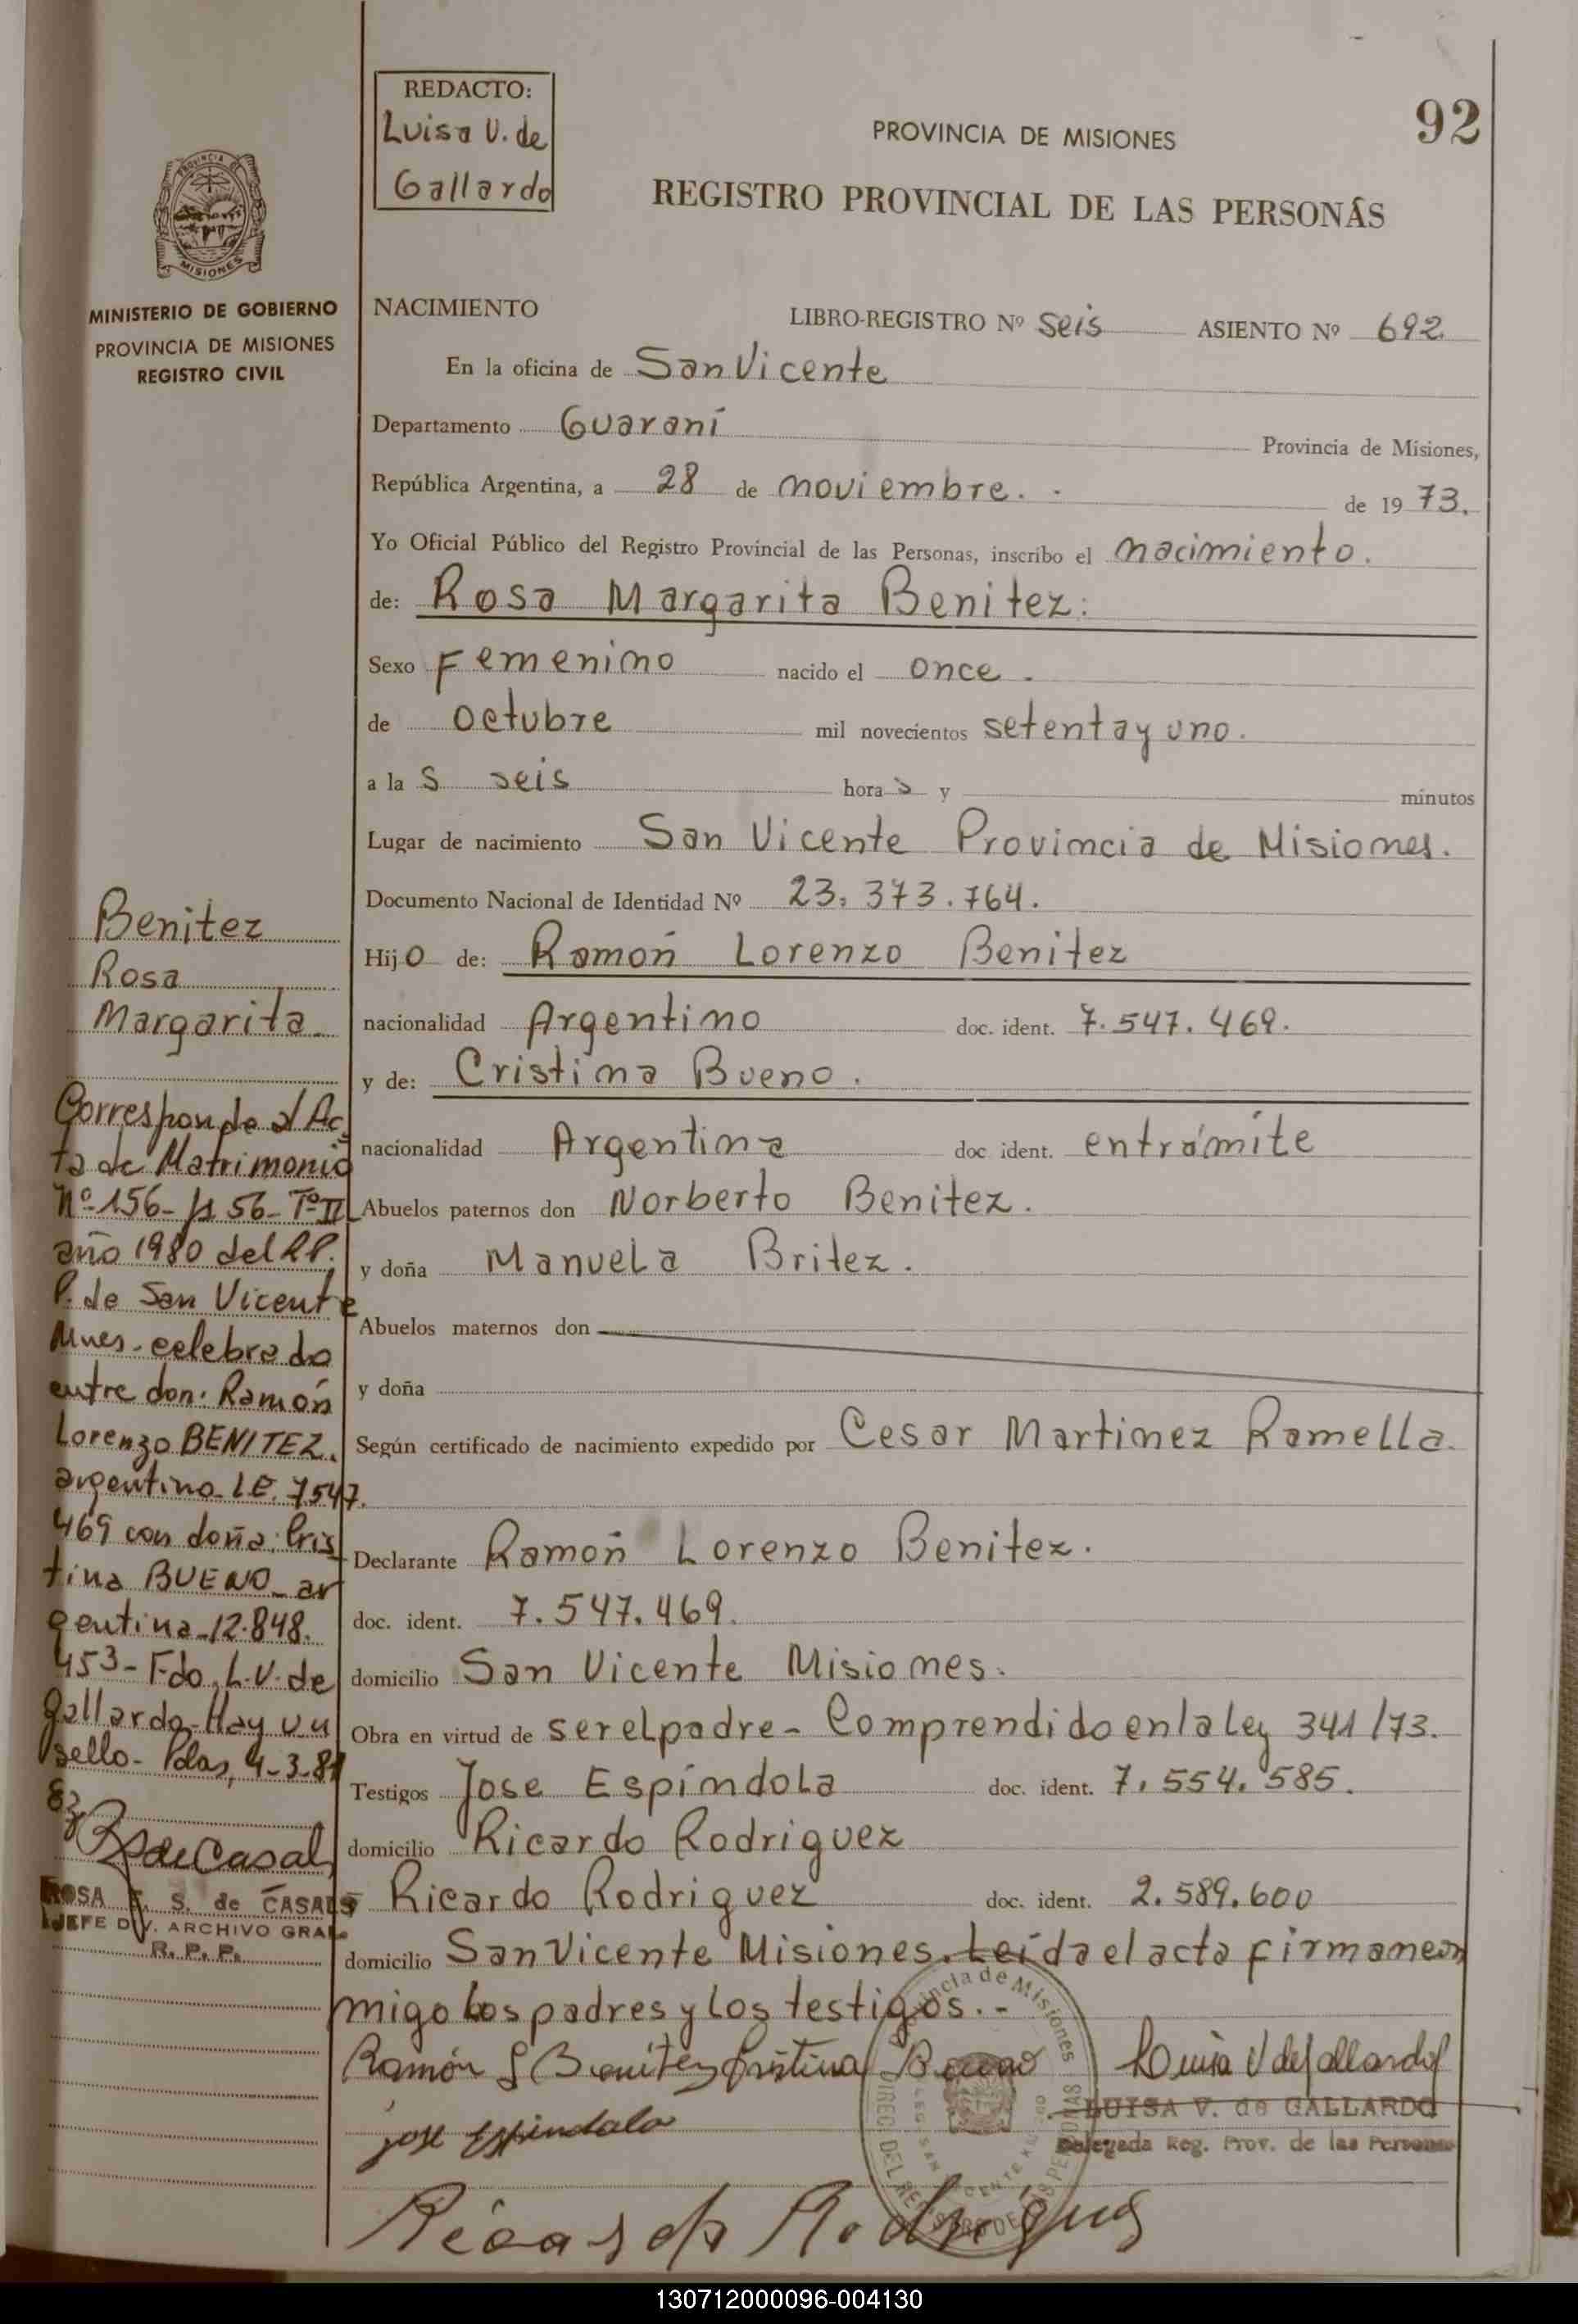 REDACTO:
Luisa V. de
Gallardo
92
PROVINCIA DE MISIONES
REGISTRO PROVINCIAL DE LAS PERSONAS
PROVINCIA DE
MISIONES
MINISTERIO DE GOBIERNO
PROVINCIA DE MISIONES
REGISTRO CIVIL
NACIMIENTO LIBRO-REGISTRO Nº seis ASIENTO Nº 692
En la oficina de San Vicente
Departamento Guaraní Provincia de Misiones,
República Argentina, a 28 de noviembre. - de 1973.
Yo Oficial Público del Registro Provincial de las Personas, inscribo el nacimiento.
de: Rosa Margarita Benitez:
Sexo Femenino nacido el once.
de octubre mil novecientos setentay uno.
a las seis horas y minutos
Lugar de nacimiento San Vicente Provincia de Misiones.
Documento Nacional de Identidad Nº 23.373.764.
Hijo de: Ramón Lorenzo Benitez
nacionalidad Argentino doc. ident. 7.547.469.
y de: Cristina Bueno.
nacionalidad Argentina doc ident. entrámite
Abuelos paternos don Norberto Benitez.
y doña Manuela Britez.
Abuelos maternos don
y doña
Según certificado de nacimiento expedido por Cesar Martinez Ramella.
Declarante Ramón Lorenzo Benitez.
doc. ident. 7.547.469.
domicilio San Vicente Misiones.
Obra en virtud de serelpadre- Comprendidoenlaley 341/73.
Testigos Jose Espíndola doc. ident. 7.554.585.
domicilio Ricardo Rodriguez
Ricardo Rodriguez doc. ident. 2.589.600
domicilio San Vicente Misiones. Leída el acta firmancon
migo los padres y los testigos.-
Ramón L Benitez Cristina Bueno Luisa V de Gallardo
LUISA V. de GALLARDO
Delegada Reg. Prov. de las Personas
jose Espindola
Ricardo Rodriguez
Benitez
Rosa
Margarita
Corresponde al Ac
ta de Matrimonio
Nº 156- fs 56- Tº II
año 1980 del R.P.
P. de San Vicente
Mnes- celebrado
entre don: Ramón
Lorenzo BENITEZ.
argentino LE. 7547.
469 con doña: Cris
tina BUENO- ar
gentina-12.848.
453- Fdo. L.V. de
Gallardo- Hay un
sello- Pdas, 4-3-81
de Casal
ROSA S. de CASALS
JEFE DIV. ARCHIVO GRAL.
R. P. P.
130712000096-004130